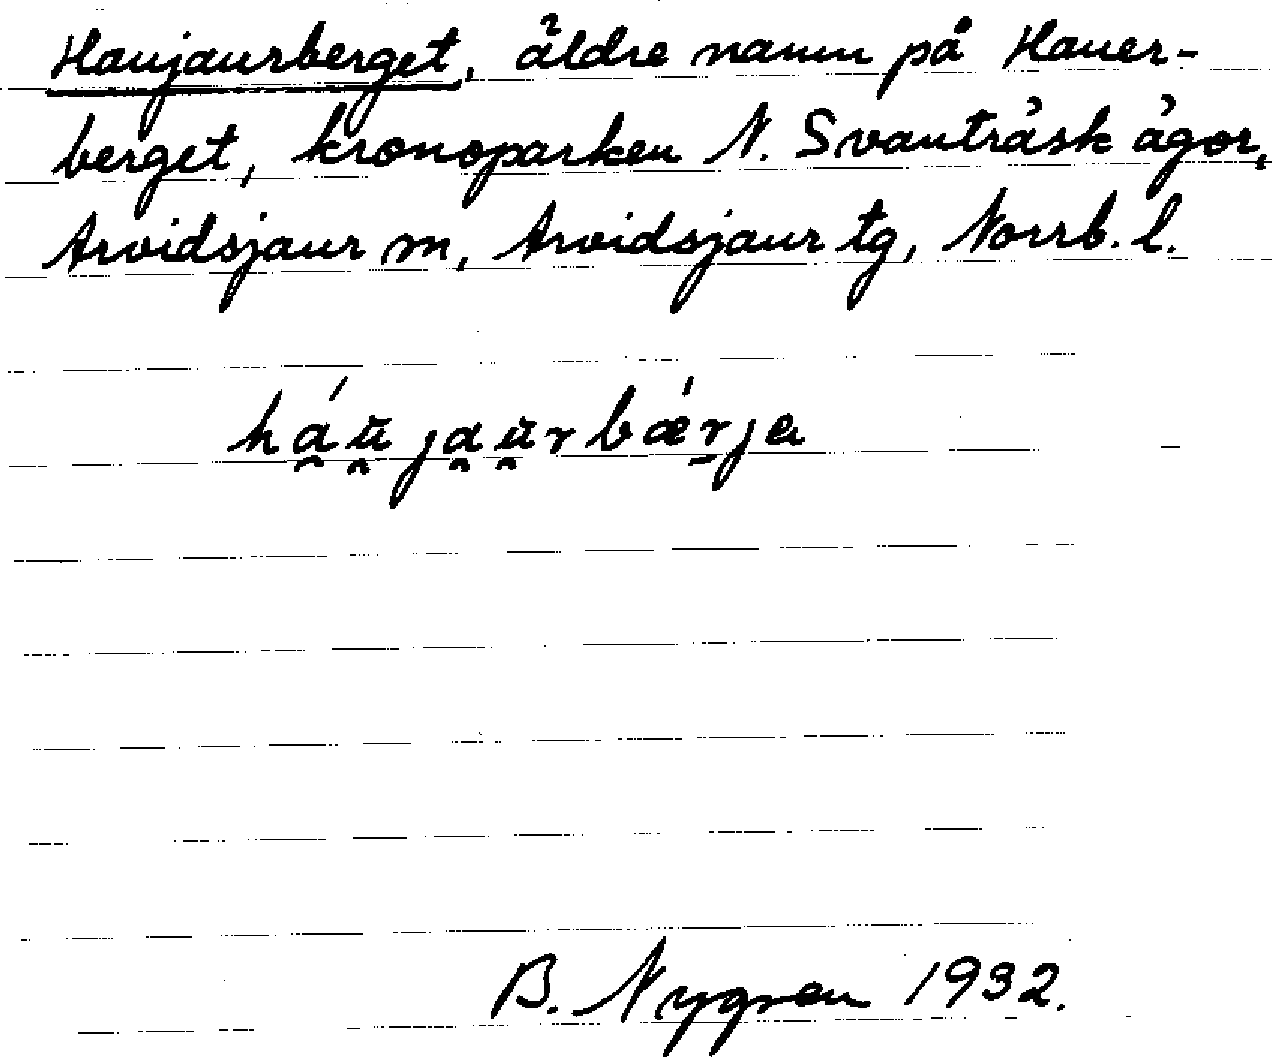 Haujaurberget, äldre namn på Hauer-
berget, kronoparken N. Svanträsk ägor,
Arvidsjaur m, Arvidsjaur tg, Norrb. l.
há̯ŭ̯ja̯ŭ̯rbǽr̠ja
B. Nygren 1932.